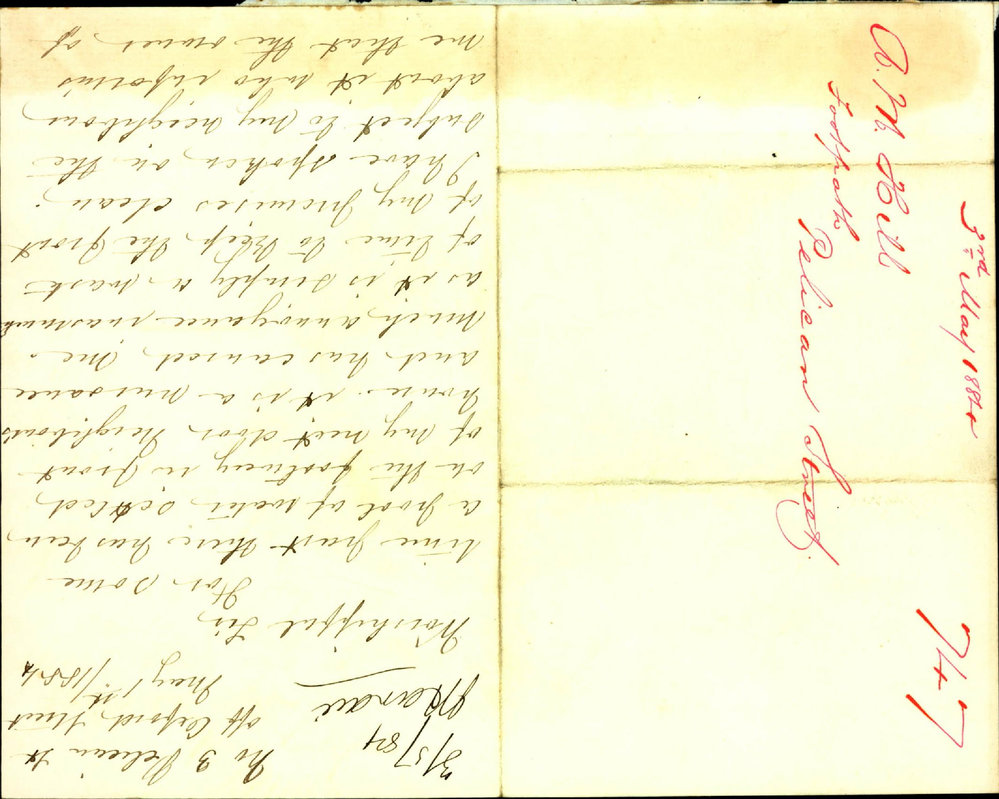 No 3 Pelican St
off Oxford Street
May 1st/1884
3/5/84
Worshipful Sir
For some
time past there has been
a pool of water settled
on the footway in front
of my next door Neighbour's
house. it is a nuisance
and has caused me
much annoyance inasmuch
as it is simply a waste
of time to keep the front
of my premises clean;
I have spoken on the
subject to my neighbour
about it who informs
me that the owner of
3rd May 1884
A. M. Hill
Footpath
Pelican Street.
747